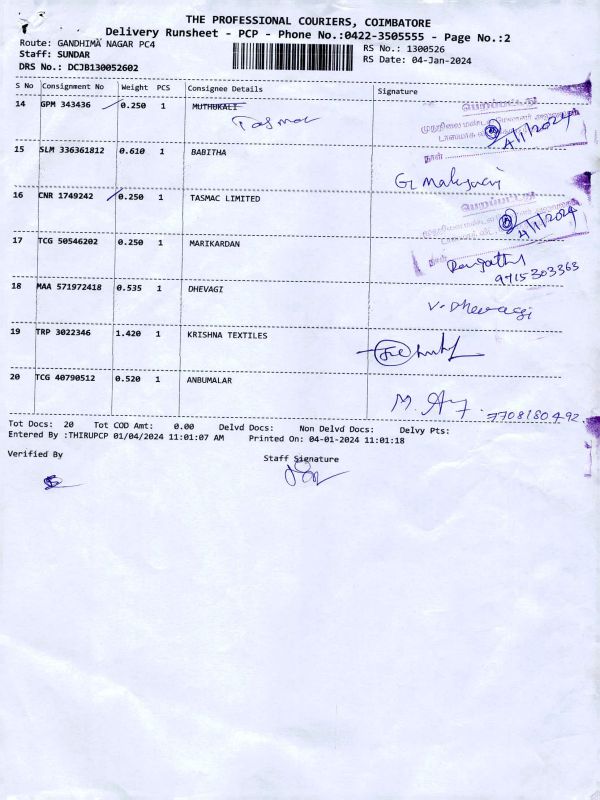 THE PROFESSIONAL COURIERS, COIMBATORE
Delivery Runsheet - PCP - Phone No.:0422-3505555 - Page No.:2
Route: GANDHIMA NAGAR PC4 RS No.: 1300526
Staff: SUNDAR RS Date: 04-Jan-2024
DRS No.: DCJB130052602
S No Consignment No Weight PCS Consignee Details Signature
14 GPM 343436 0.250 1 MUTHUKALI
Tasmac
பெறப்பட்டது
4/1/2024
நாள்
15 SLM 336361812 0.610 1 BABITHA
16 CNR 1749242 0.250 1 TASMAC LIMITED
பெறப்பட்டது
4/1/2024
நாள்
17 TCG 50546202 0.250 1 MARIKARDAN
9715303363
18 MAA 571972418 0.535 1 DHEVAGI
V. Dhevagi
19 TRP 3022346 1.420 1 KRISHNA TEXTILES
20 TCG 40790512 0.520 1 ANBUMALAR
7708180492
Tot Docs: 20 Tot COD Amt: 0.00 Delvd Docs: Non Delvd Docs: Delvy Pts:
Entered By :THIRUPCP 01/04/2024 11:01:07 AM Printed On: 04-01-2024 11:01:18
Verified By Staff Signature